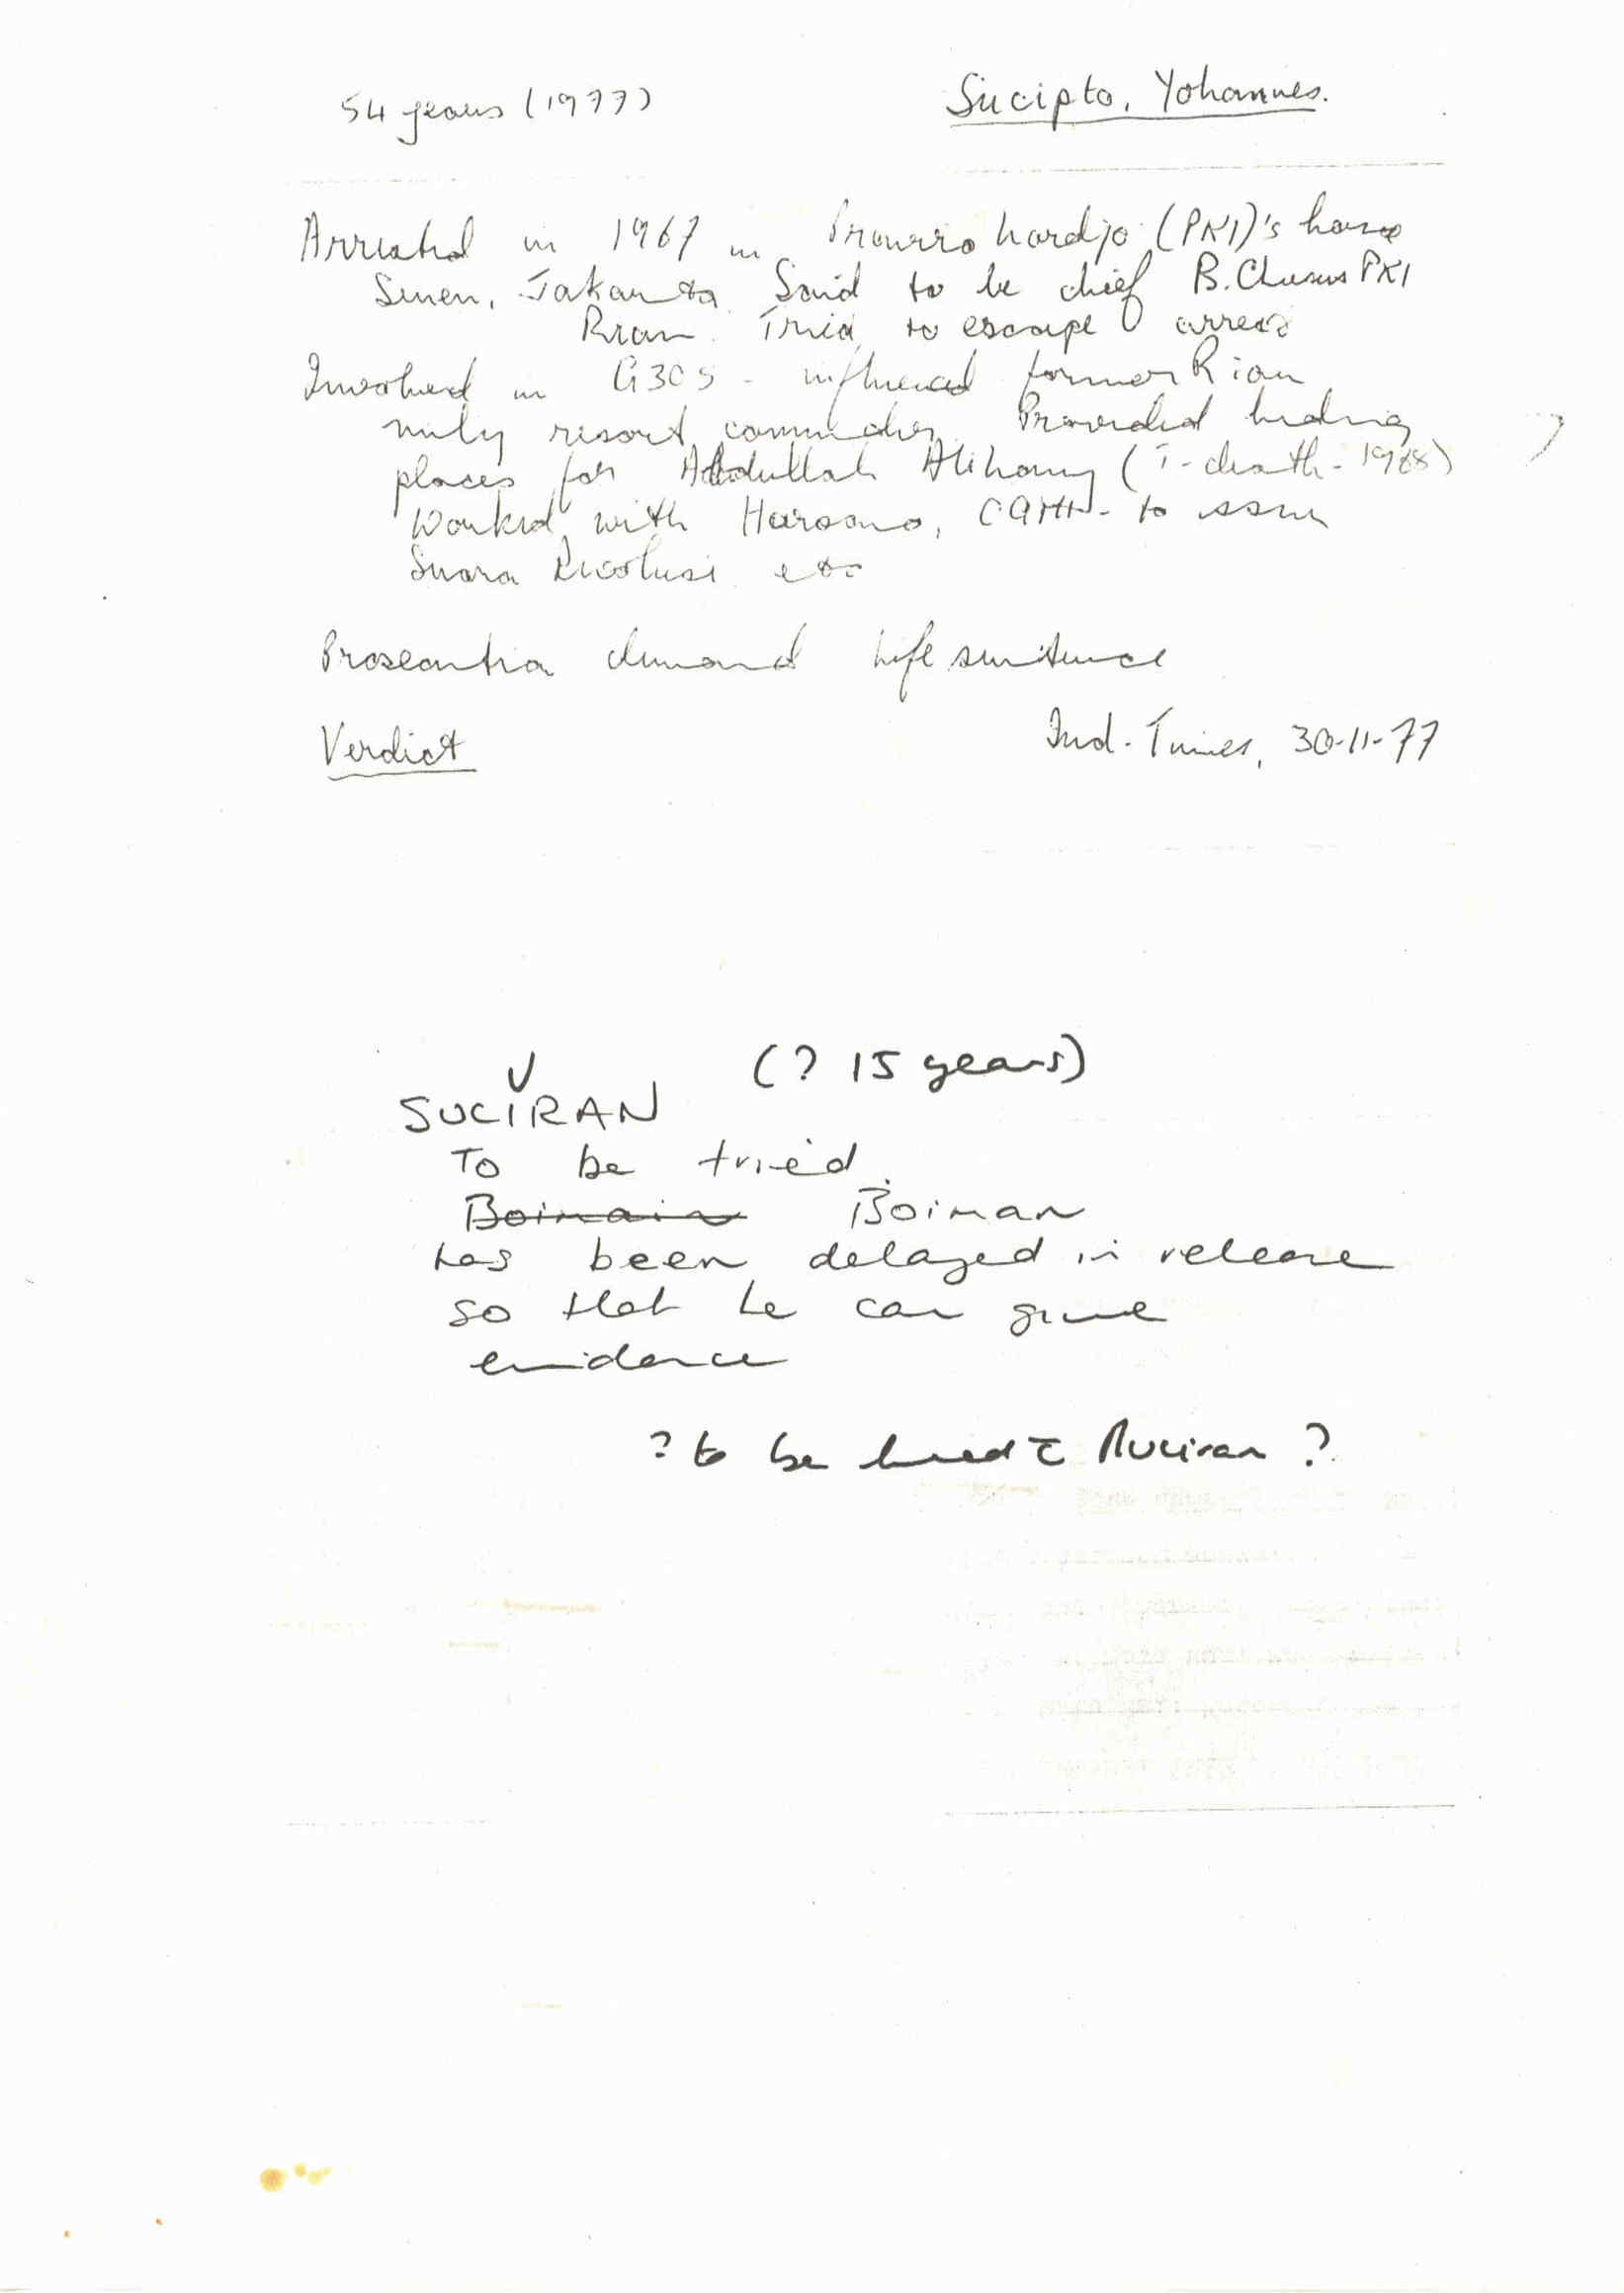 54 years (1977) Sucipto, Yohannes.
Arrested in 1967 in Prawirohardjo (PKI)'s house
Senen, Jakarta. Said to be chief B. Chusus PKI
Riau. Tried to escape arrest
Involved in G30S - influenced former Riau
mily resort commander. Provided hiding
places for Abdullah Alihamy (T-death-1968)
Worked with Harsono, CGMI - to issue
Suara Revolusi etc
Prosecution demand life sentence
Verdict Ind. Times, 30-11-77
(? 15 years)
SUCIRAN
To be tried.
Boimain Boiman
has been delayed in release
so that he can give
evidence
? to be tried c̄ Ruciran ?